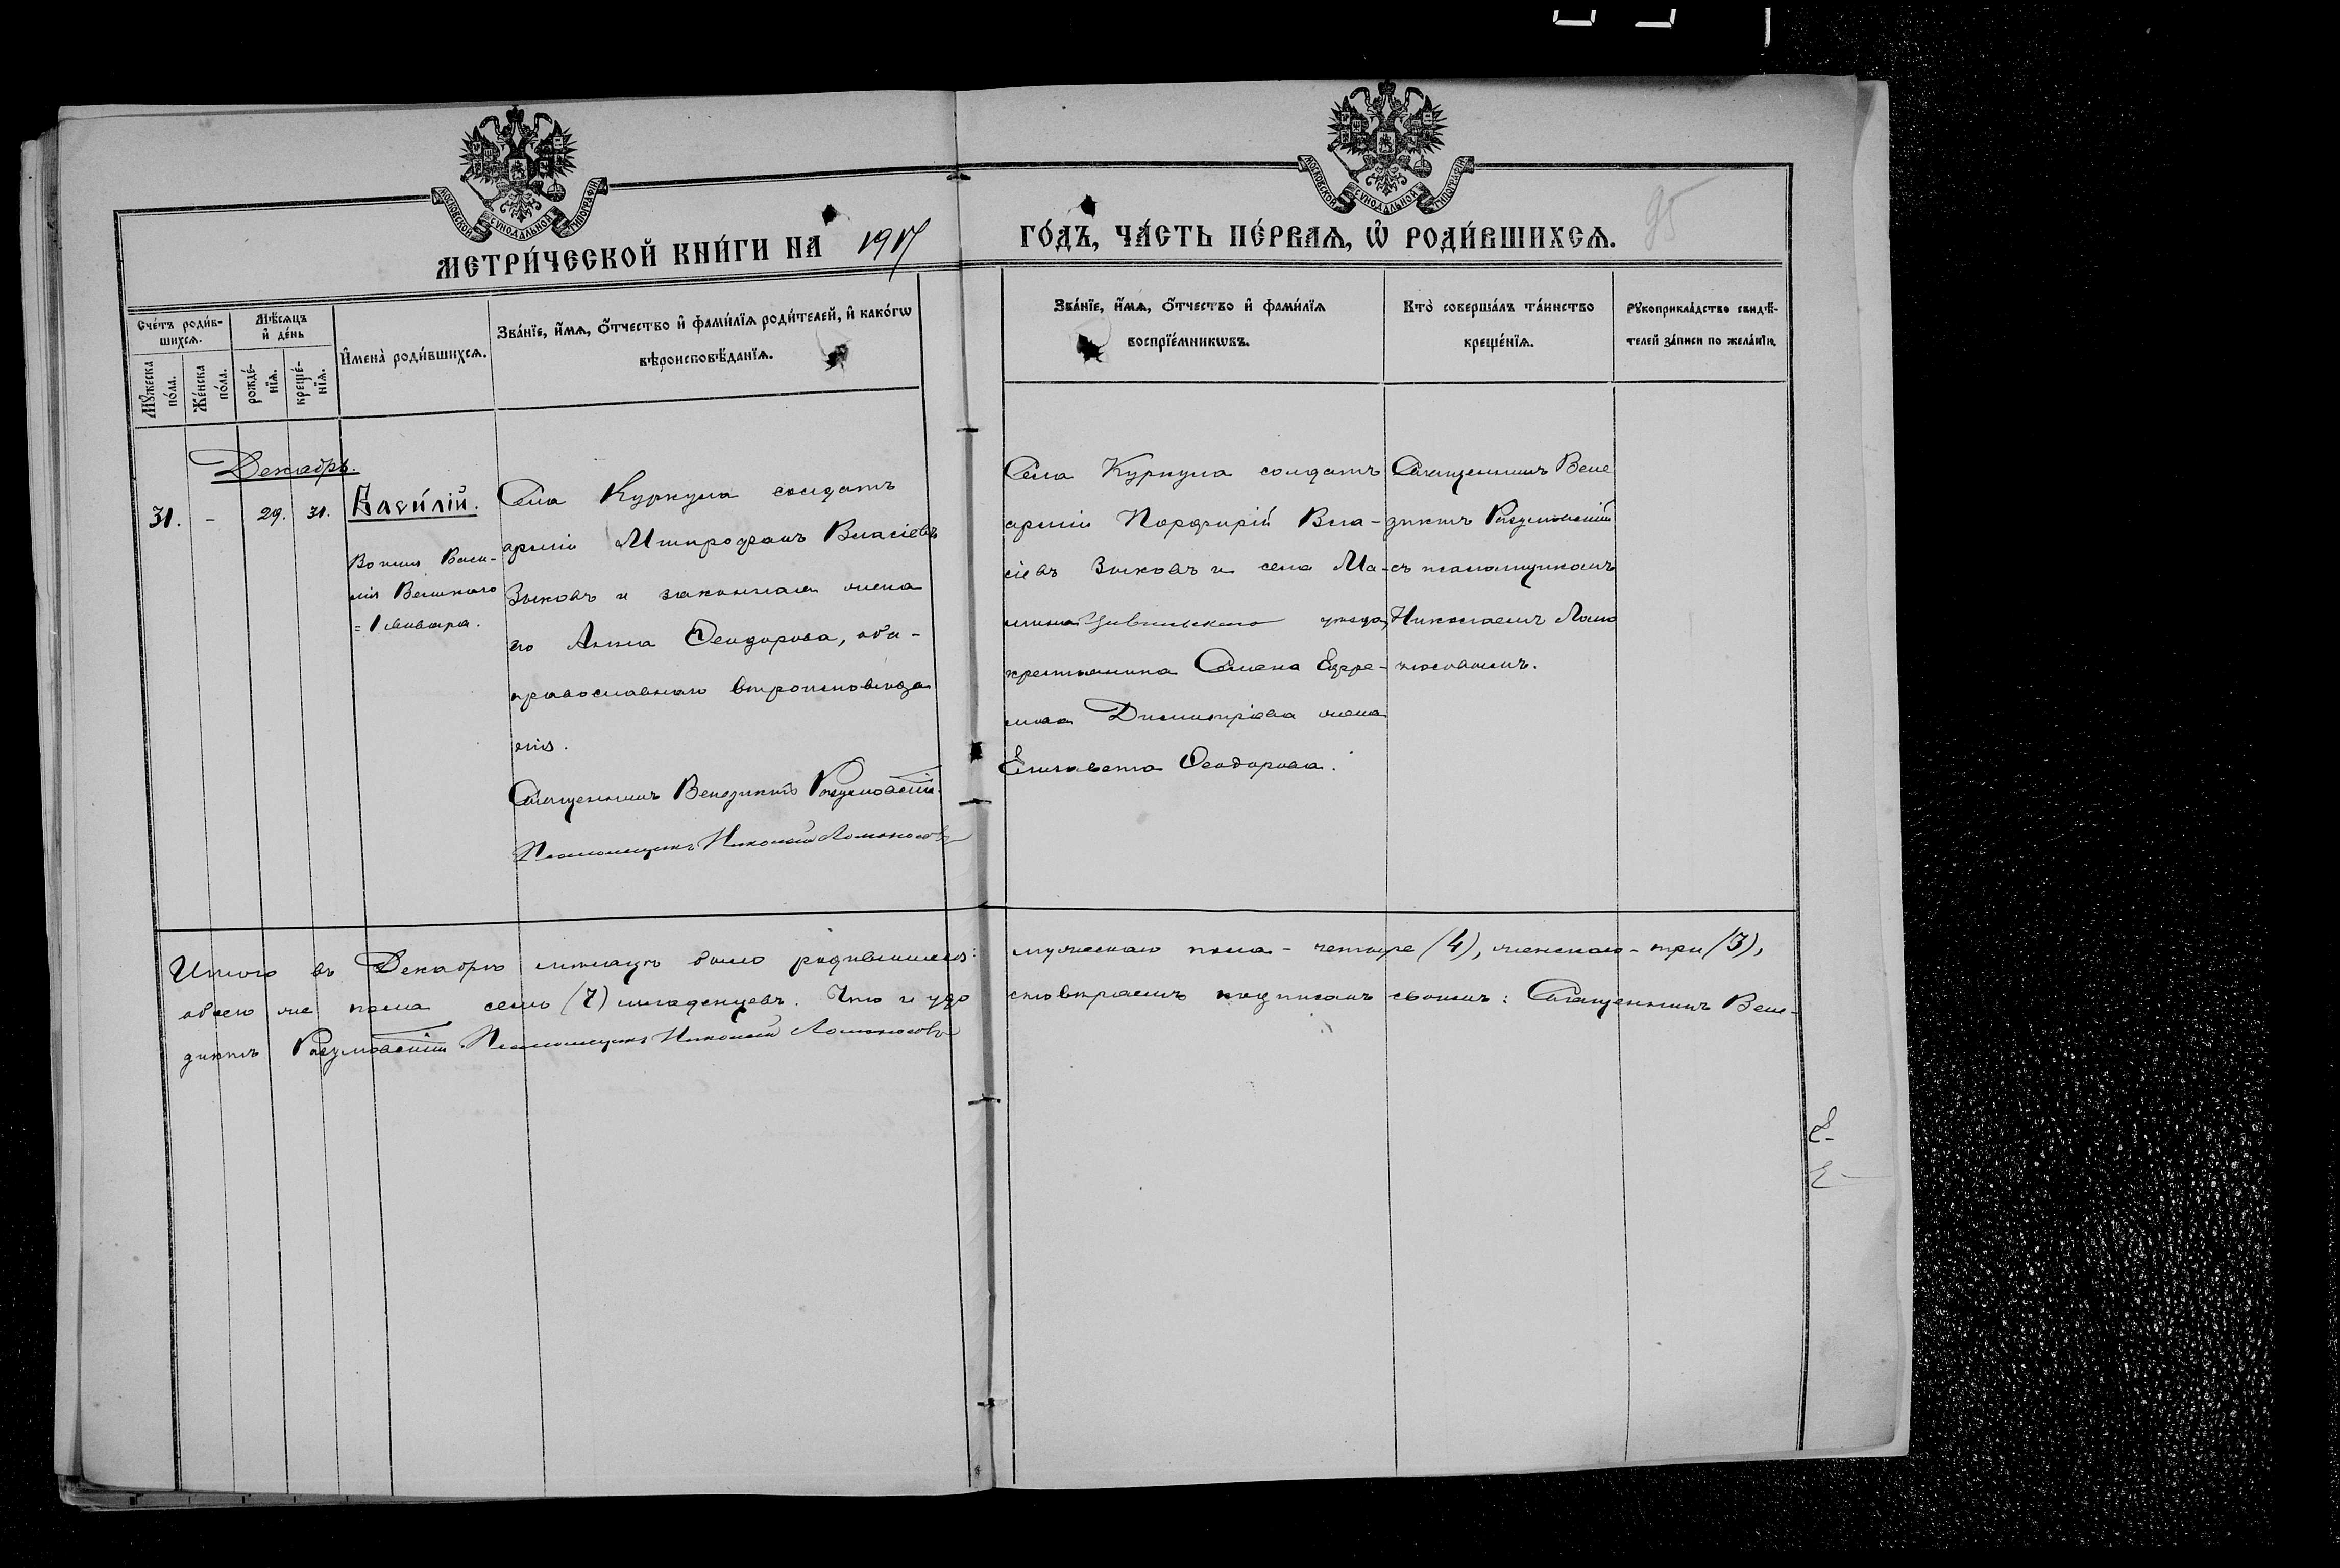 МОСКОВСКОЙ СѴНОДАЛЬНОЙ ТИПОГРАФІИ
МОСКОВСКОЙ СѴНОДАЛЬНОЙ ТИПОГРАФІИ
МЕТРИ́ЧЕСКОЙ КНИ́ГИ НА 1917
ГО́ДЪ, ЧА́СТЬ ПЕ́РВАѦ, Ѡ҆ РОДИ́ВШИХСѦ.
95
Сче́тъ роди́в-
шихсѧ.
Мꙋ́жеска
по́ла.
Же́нска
по́ла.
Мѣ́сѧцъ
и҆ де́нь
рожде́-
нїѧ.
креще́-
нїѧ.
И҆мена̀ роди́вшихсѧ.
Зва́нїе, и҆́мѧ, ѻ҆́тчество и҆ фами́лїѧ роди́телей, и҆ како́гѡ
вѣроисповѣ́данїѧ.
Зва́нїе, и҆́мѧ, ѻ҆́тчество и҆ фами́лїѧ
воспрїе́мникѡвъ.
Кто̀ соверша́лъ та́инство
креще́нїѧ.
Рꙋкоприкла́дство свидѣ́-
телей за́писи по жела́нїю.
Декабрь.
31.
-
29.
31.
Васи́лій.
Во имя Васи-
лія Великаго
= 1 Января.
Села Куркула солдатъ
арміи Митрофанъ Власіевъ
Зыковъ и законная жена
его Анна Ѳеодорова, оба -
православнаго вѣроисповѣда
нія.
Священникъ Венедиктъ Разумовскій.
Псаломщикъ Николай Ломоносовъ
Села Куркула солдатъ
арміи Порфирій Вла-
сіевъ Зыковъ и села Ма-
Цивильскаго уѣзда,
крестьянина Семена Ефре-
мова Димитріева жена
Елизавета Ѳеодорова.
Священникъ Вене
диктъ Разумовскій
съ псаломщикомъ
Николаемъ Ломо
носовымъ.
Итого въ Декабрѣ мѣсяцѣ было родившихся: мужескаго пола - четыре (4), женскаго - три (3),
обоего же пола семь (7) младенцевъ. Что и удо
стовѣряемъ подписомъ своимъ: Священникъ Вене-
диктъ Разумовскій. Псаломщикъ Николай Ломоносовъ